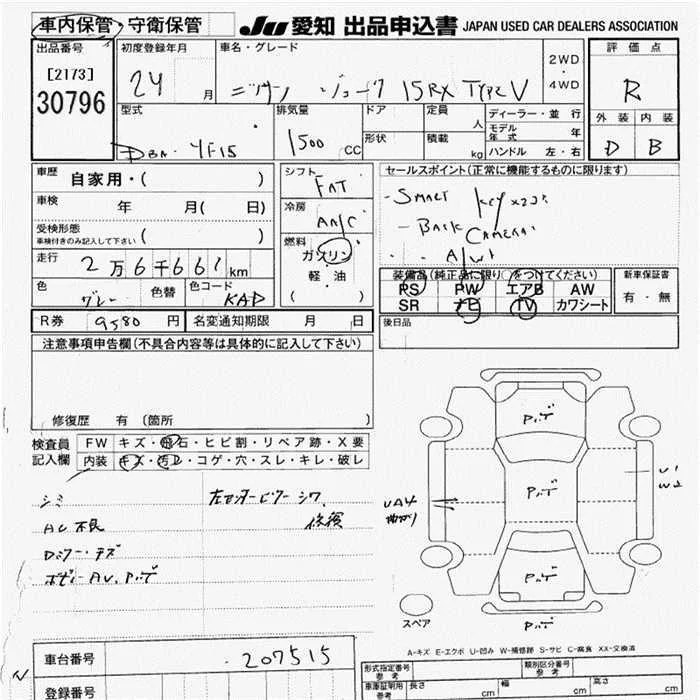 車内保管・守衛保管 JU 愛知 出品申込書 JAPAN USED CAR DEALERS ASSOCIATION
出品番号
[2173]
30796
初度登録年月
24 月
車名・グレード
15RX TYPE V
2WD
・
4WD
評価点
R
外装 内装
D B
型式
DBA- YF15
排気量
1500 CC
ドア
形状
定員
人
積載
kg
ディーラー・並行
モデル年式 年
ハンドル 左・右
車歴 自家用・( )
車検 年 月( 日)
受検形態
車検付きのみ記入して下さい ( )
走行 2万6千661km
色 グレー 色替 色コード KAD
シフト
FAT
冷房
AA/C
燃料
ガスリン
軽・油
( )
セールスポイント(正常に機能するものに限ります)
-SMART KEY x2コ
-BACK CAMERA
A/W
装備品(純正品に限り○をつけてください)
PS PW エアB AW
SR ナビ TV カワシート
新車保証書
有・無
後日品
R券 9580 円 名変通知期限 月 日
注意事項申告欄(不具合内容等は具体的に記入して下さい)
修復歴 有 (箇所 )
検査員
記入欄
FW キズ・飛石・ヒビ割・リペア跡・X要
内装 キズ・汚レ・コゲ・穴・スレ・キレ・破レ
シミ
AC不良
Dミラー・キズ
ボディーAU、
左センターピラー シワ
修復
UA4
曲がり
U1
W2
スペア
A-キズ E-エクボ U-凹み W-補修跡 S-サビ C-腐食 XX-交換済
車台番号 207515
登録番号
形式指定番号
参考
類別区分番号
参考
車庫証明用
参考
長さ cm
幅 cm
高さ cm